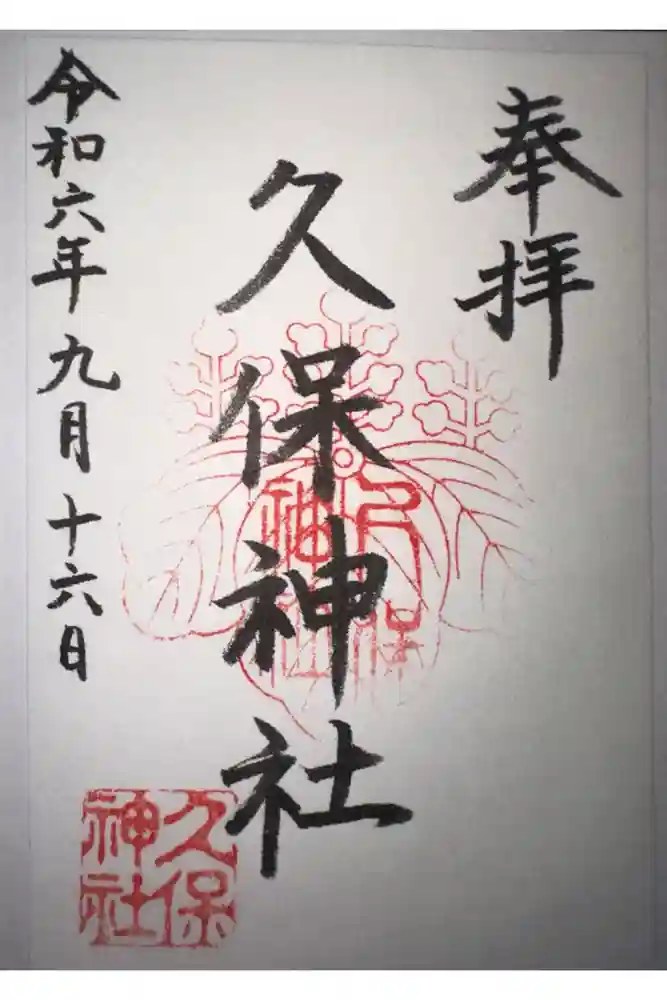 奉拝
久保神社
令和六年九月十六日
久保神社
久保神社